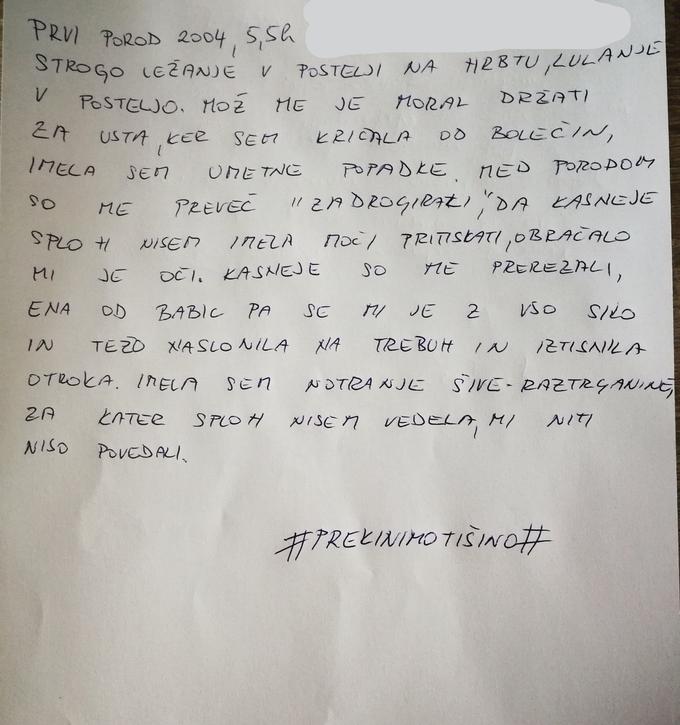 PRVI POROD 2004, 5,5h
STROGO LEŽANJE V POSTELJI NA HRBTU, LULANJE
V POSTELJO. MOŽ ME JE MORAL DRŽATI
ZA USTA, KER SEM KRIČALA OD BOLEČIN,
IMELA SEM UMETNE POPADKE. MED PORODOM
SO ME PREVEČ "ZADROGIRALI", DA KASNEJE
SPLOH NISEM IMELA MOČI PRITISKATI, OBRAČALO
MI JE OČI. KASNEJE SO ME PREREZALI,
ENA OD BABIC PA SE MI JE Z VSO SILO
IN TEŽO NASLONILA NA TREBUH IN IZTISNILA
OTROKA. IMELA SEM NOTRANJE ŠIVE - RAZTRGANINE,
ZA KATER SPLOH NISEM VEDELA, MI NITI
NISO POVEDALI.
#PREKINIMOTIŠINO#